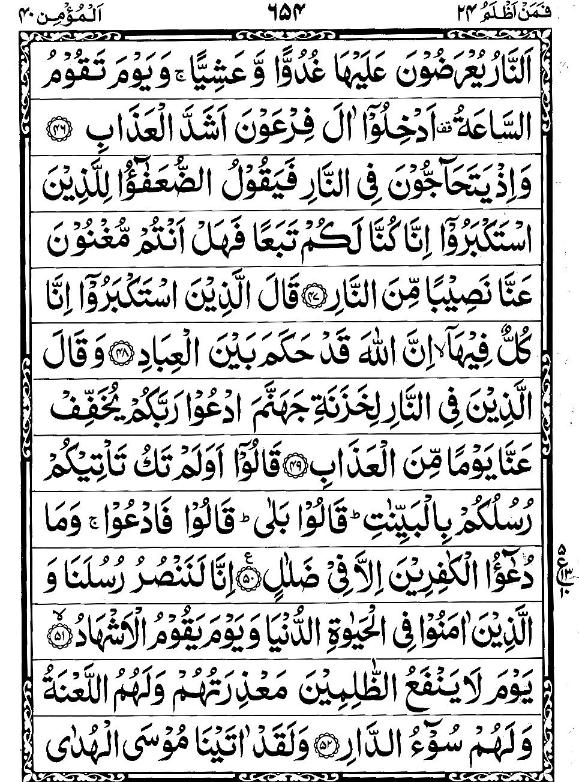 فَمَنْ اَظْلَمُ ٢٤ ٦٥٤ اَلْمُؤْمِن ٤٠
اَلنَّارُ يُعْرَضُوْنَ عَلَيْهَا غُدُوًّا وَّ عَشِيًّا ۚ وَ يَوْمَ تَقُوْمُ
السَّاعَةُ قف اَدْخِلُوْۤا اٰلَ فِرْعَوْنَ اَشَدَّ الْعَذَابِ ﴿۴۶﴾
وَ اِذْ يَتَحَآجُّوْنَ فِى النَّارِ فَيَقُوْلُ الضُّعَفٰٓؤُا لِلَّذِيْنَ
اسْتَكْبَرُوْۤا اِنَّا كُنَّا لَكُمْ تَبَعًا فَهَلْ اَنْتُمْ مُّغْنُوْنَ
عَنَّا نَصِيْبًا مِّنَ النَّارِ ﴿۴۷﴾ قَالَ الَّذِيْنَ اسْتَكْبَرُوْۤا اِنَّا
كُلٌّ فِيْهَاۤ ۙ اِنَّ اللّٰهَ قَدْ حَكَمَ بَيْنَ الْعِبَادِ ﴿۴۸﴾ وَ قَالَ
الَّذِيْنَ فِى النَّارِ لِخَزَنَةِ جَهَنَّمَ ادْعُوْا رَبَّكُمْ يُخَفِّفْ
عَنَّا يَوْمًا مِّنَ الْعَذَابِ ﴿۴۹﴾ قَالُوْۤا اَوَلَمْ تَكُ تَاْتِيْكُمْ
رُسُلُكُمْ بِالْبَيِّنٰتِ ؕ قَالُوْا بَلٰى ؕ قَالُوْا فَادْعُوْا ۚ وَ مَا
دُعٰٓؤُا الْكٰفِرِيْنَ اِلَّا فِىْ ضَلٰلٍ ﴿۵۰﴾ ع اِنَّا لَنَنْصُرُ رُسُلَنَا وَ
۵ ع ۱۳ ۱۰
الَّذِيْنَ اٰمَنُوْا فِى الْحَيٰوةِ الدُّنْيَا وَ يَوْمَ يَقُوْمُ الْاَشْهَادُ ﴿۵۱﴾ ۙ
يَوْمَ لَا يَنْفَعُ الظّٰلِمِيْنَ مَعْذِرَتُهُمْ وَ لَهُمُ اللَّعْنَةُ
وَ لَهُمْ سُوْٓءُ الدَّارِ ﴿۵۲﴾ وَ لَقَدْ اٰتَيْنَا مُوْسَى الْهُدٰى